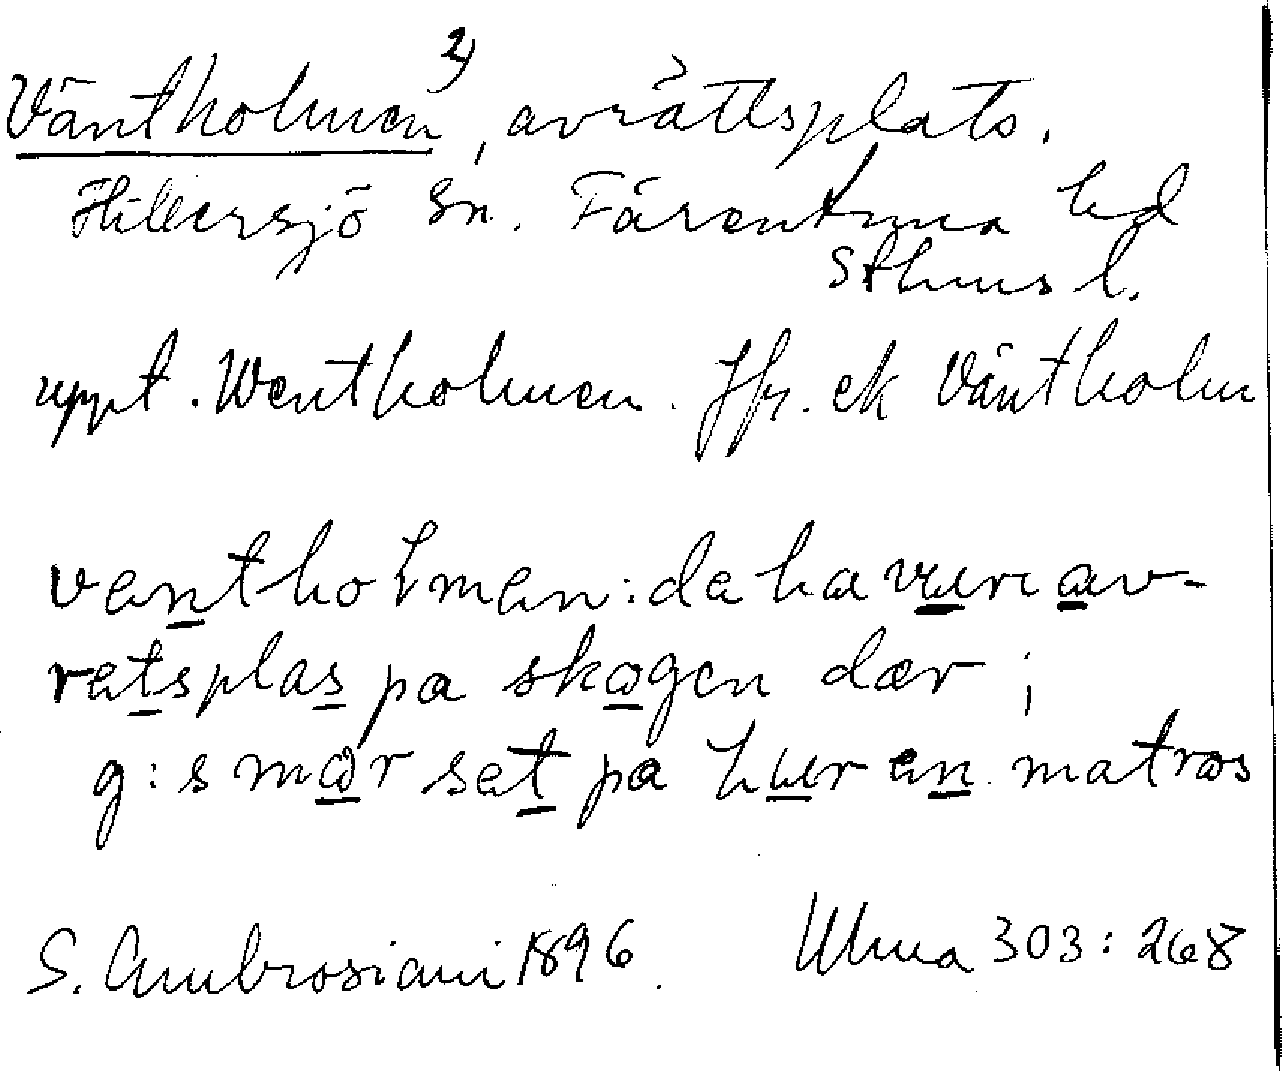 Väntholmen 2), avrättsplats.
Hillersjö Sn. Färentuna hd
Sthms l.
uppt. Wentholmen. Jfr. ek Väntholm
ventholmen: de ha vuri av-
retsplas pa skogen dær ;
g: s mor set pa hur en matros
S. Ambrosiani 1896. Ulma 303: 268